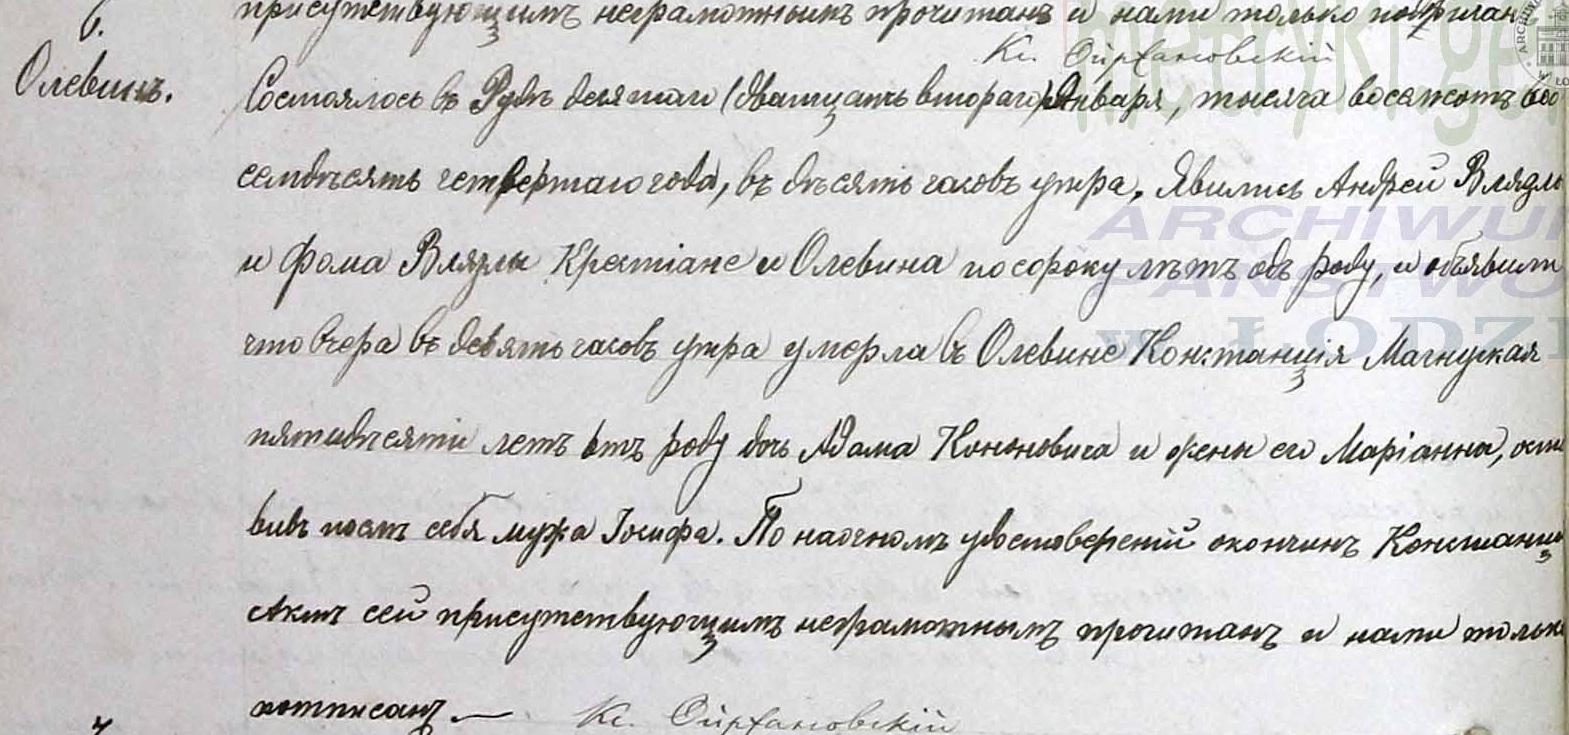 6.
присутствующимъ неграмотнымъ прочитанъ и нами только подписан
Олевинъ.
Состоялось въ Рудѣ десятаго (двадцать втораго) Января, тысяча восемьсотъ
семдѣсятъ четвертаго года, въ дѣсять часовъ утра, Явились Андрей
и Фома Крестіане и Олевина по сороку лѣтъ одъ роду, и объявили
что вчера въ девять часовъ утра умерла въ Олевине Констанція Магнуская
пятидѣсяти летъ отъ роду дочь Адама Кононовича и жены его Маріанна, оста
вивъ послѣ себя мужа Іосифа. По наочномъ удостовереній окончинъ Констанціи
Актъ сей присутствующимъ неграмотнымъ прочитанъ и нами только
потписанъ. Кс.
7
metryki.ge
ARCHIWU
PAŃSTWO
w ŁODZI